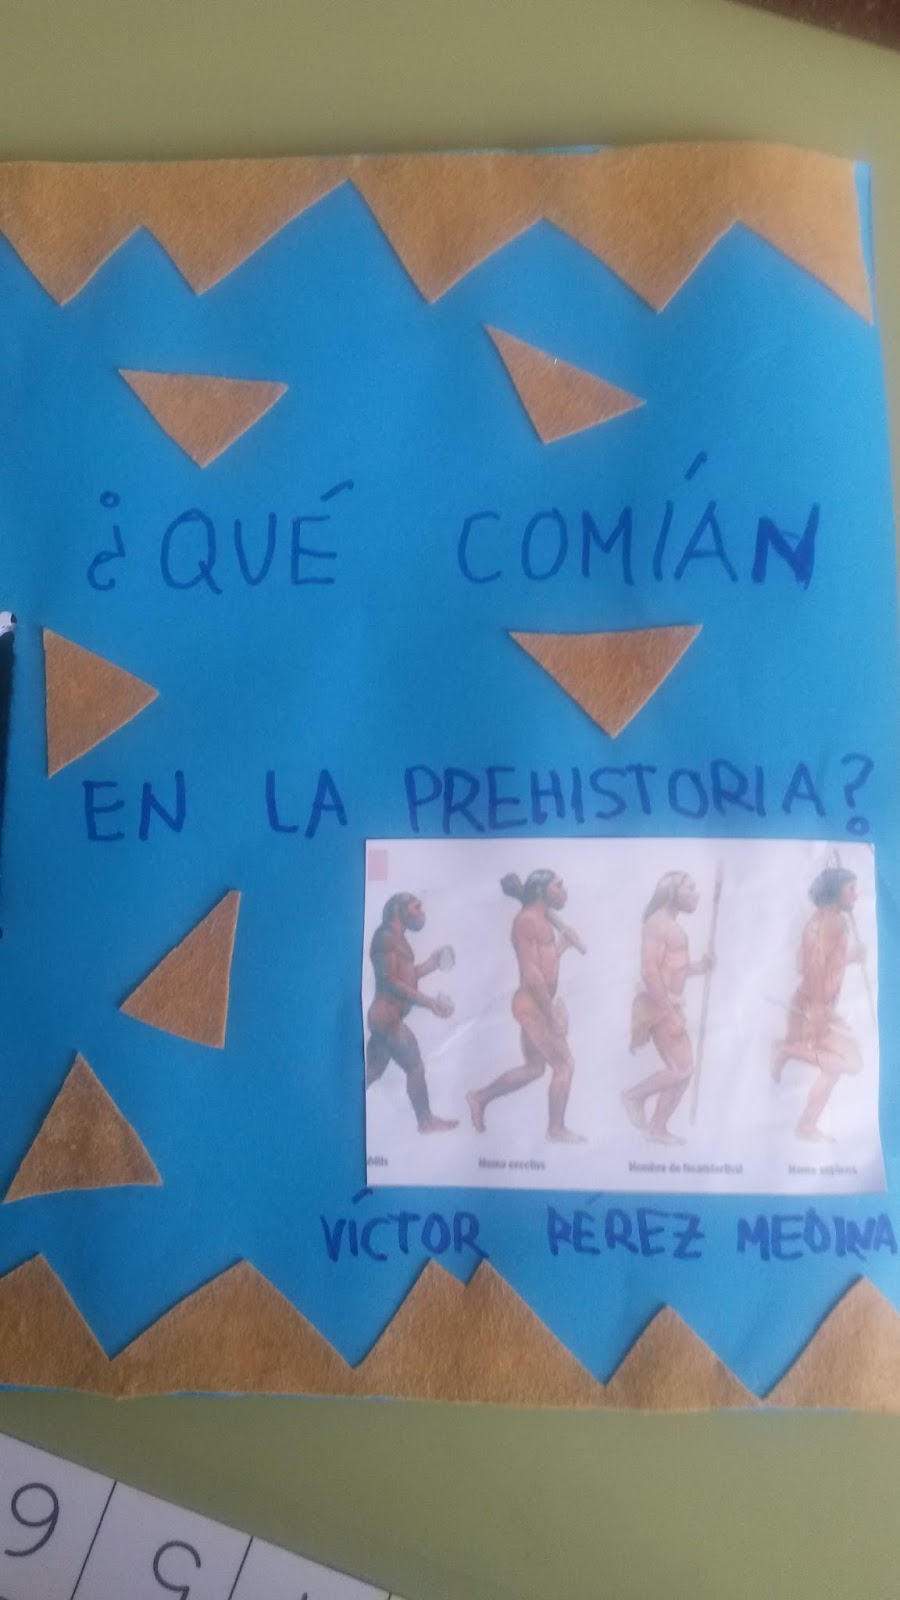 ¿QUÉ COMÍAN
EN LA PREHISTORIA?
Homo erectus Hombre de Neanderthal Homo sapiens
VÍCTOR PÉREZ MEDINA
6 5